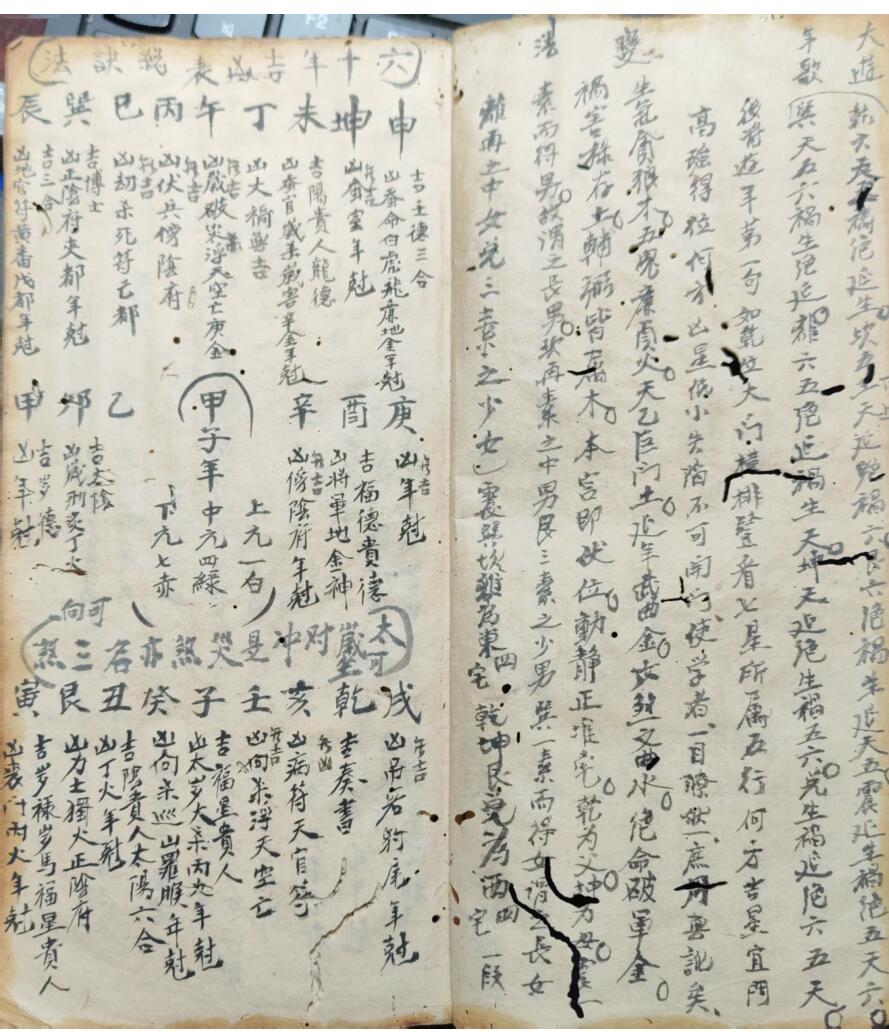 大遊
年歌
乾六天五禍絕延生坎五天生延絕禍六艮六絕禍生延天五震延生禍絕五天六
巽天五六禍生絕延離六五絕延禍生天坤天延絕生禍五六兌生禍延絕六五天
後背遊年第一句如乾位大門橫排登看七星所屬五行何方吉星宜門
高強得位何方凶星低小失陷不可開門使学者一目瞭然庶用無訛矣
變
生氣貪狼木五鬼廉貞火天乙巨門土延年武曲金六煞文曲水絕命破軍金
禍害祿存土輔弼皆屬木本宮即伏位動靜正准宅乾为父坤为母震一
法
索而得男故謂之長男坎再索之中男艮三索之少男巽一索而得女謂之長女
離再之中女兌三索之少女震巽坎離为東四宅乾坤艮兌为西四宅一段
六十年吉凶表總訣法
申
吉壬德三合
凶蚕命白虎龍廉地金年尅
坤
兼吉
凶蚕室年尅
未
吉陽貴人龍德
凶蚕官歲煞歲害辛金年尅
丁
凶大禍無吉
午
兼吉
凶歲破災浮天空亡庚金
丙
兼吉
凶伏兵傍陰府
巳
兼吉
凶劫煞死符己都
巽
吉博士
凶正陰府夹都年尅
辰
吉三合
凶地官符黄番戊都年尅
庚
兼吉
凶年尅
酉
吉福德貴德
凶將軍地金神
辛
兼吉
凶傍陰府年尅
甲子年
上元一白
中元四緑
下元七赤
乙
卯
吉太陰
凶歲刑灸丁火
甲
吉岁德
凶年尅
太歲对冲是災煞亦名三煞
可坐
可向
戌
兼吉
凶吊客豹尾年尅
乾
吉奏書
兼凶
亥
凶病符天官符
壬
兼吉
凶向煞浮天空亡
子
吉福星貴人
凶太岁大煞丙火年尅
癸
凶向煞巡山羅睺年尅
丑
吉陰貴人太陽六合
凶丁火年尅
艮
凶力士獨火正陰府
寅
吉岁禄岁馬福星貴人
凶喪門丙火年尅